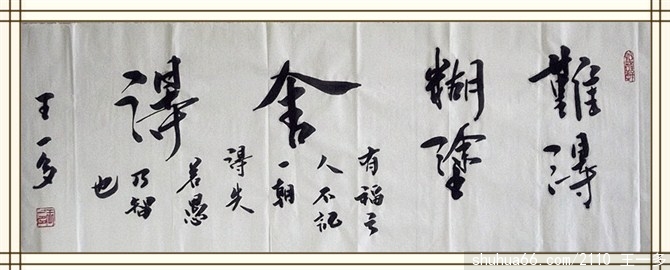 難得
糊塗
舍得
有福之
人不記
一朝
得失
若愚
乃智
也
王一多
shuhua66.com/2110 王一多